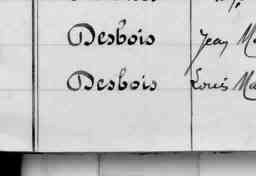 Desbois Jean
Desbois Louis